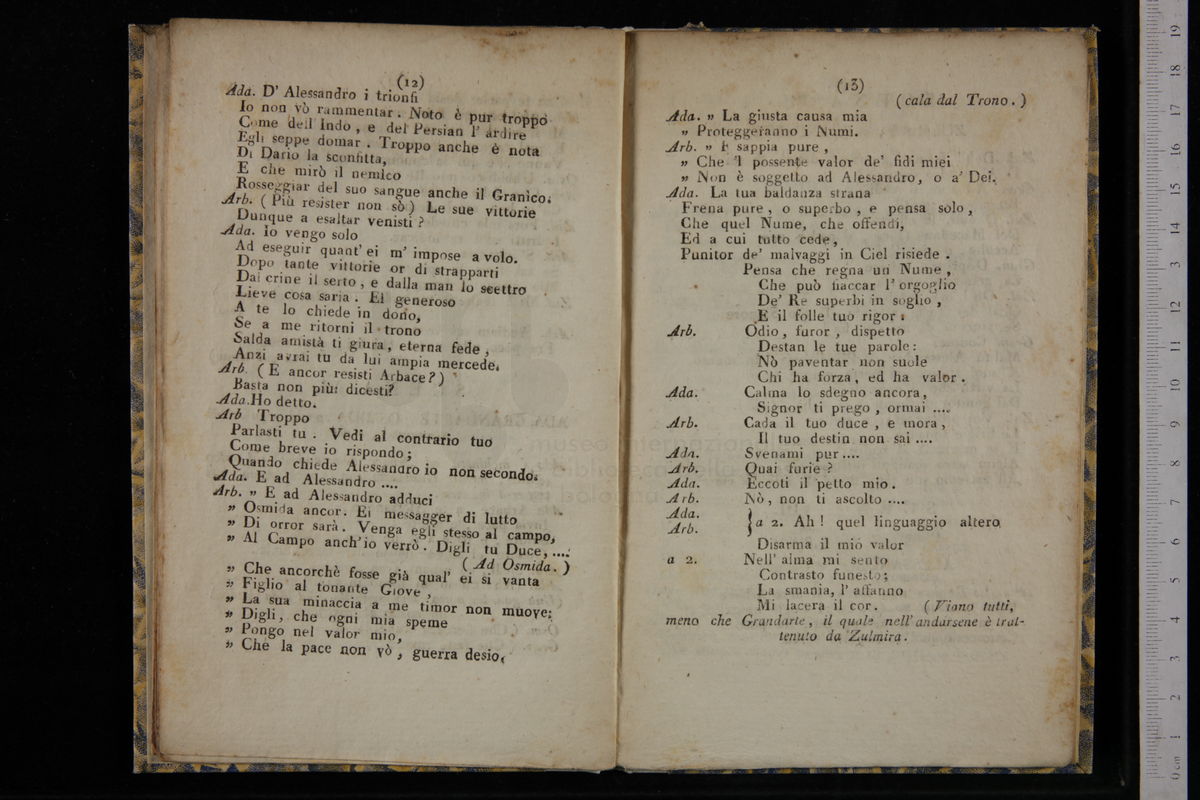 (12)
Ada. D' Alessandro i trionfi
Io non vò rammentar. Noto è pur troppo
Come dell'Indo, e del Persian l' ardire
Egli seppe domar. Troppo anche è nota
Di Dario la sconfitta,
E che mirò il nemico
Rosseggiar del suo sangue anche il Granico.
Arb. (Più resister non sò) Le sue vittorie
Dunque a esaltar venisti?
Ada. Io vengo solo
Ad eseguir quant' ei m' impose a volo.
Dopo tante vittorie or di strapparti
Dal crine il serto, e dalla man lo scettro
Lieve cosa saria. Ei generoso
A te lo chiede in dono,
Se a me ritorni il trono
Salda amistà ti giura, eterna fede,
Anzi avrai tu da lui ampia mercede.
Arb. (E ancor resisti Arbace?)
Basta non più: dicesti?
Ada. Ho detto.
Arb Troppo
Parlasti tu. Vedi al contrario tuo
Come breve io rispondo;
Quando chiede Alessandro io non secondo.
Ada. E ad Alessandro ....
Arb. „ E ad Alessandro adduci
„ Osmida ancor. Ei messagger di lutto
„ Di orror sarà. Venga egli stesso al campo,
„ Al Campo anch'io verrò. Digli tu Duce, ....
( Ad Osmida. )
„ Che ancorchè fosse già qual' ei si vanta
„ Figlio al tonante Giove,
„ La sua minaccia a me timor non muove;
„ Digli, che ogni mia speme
„ Pongo nel valor mio,
„ Che la pace non vò, guerra desio.
(13)
( cala dal Trono. )
Ada. „ La giusta causa mia
„ Proteggeranno i Numi.
Arb. „ E sappia pure,
„ Che 'l possente valor de' fidi miei
„ Non è soggetto ad Alessandro, o a' Dei.
Ada. La tua baldanza strana
Frena pure, o superbo, e pensa solo,
Che quel Nume, che offendi,
Ed a cui tutto cede,
Punitor de' malvaggi in Ciel risiede.
Pensa che regna un Nume,
Che può fiaccar l' orgoglio
De' Re superbi in soglio,
E il folle tuo rigor.
Arb. Odio, furor, dispetto
Destan le tue parole:
Nò paventar non suole
Chi ha forza, ed ha valor.
Ada. Calma lo sdegno ancora,
Signor ti prego, ormai ....
Arb. Cada il tuo duce, e mora,
Il tuo destin non sai ....
Ada. Svenami pur ....
Arb. Quai furie?
Ada. Eccoti il petto mio.
Arb. Nò, non ti ascolto ....
Ada.
Arb. } a 2. Ah! quel linguaggio altero
Disarma il mio valor
a 2. Nell' alma mi sento
Contrasto funesto;
La smania, l' affanno
Mi lacera il cor. ( Viano tutti,
meno che Grandarte, il quale nell' andarsene è trat-
tenuto da Zulmira.